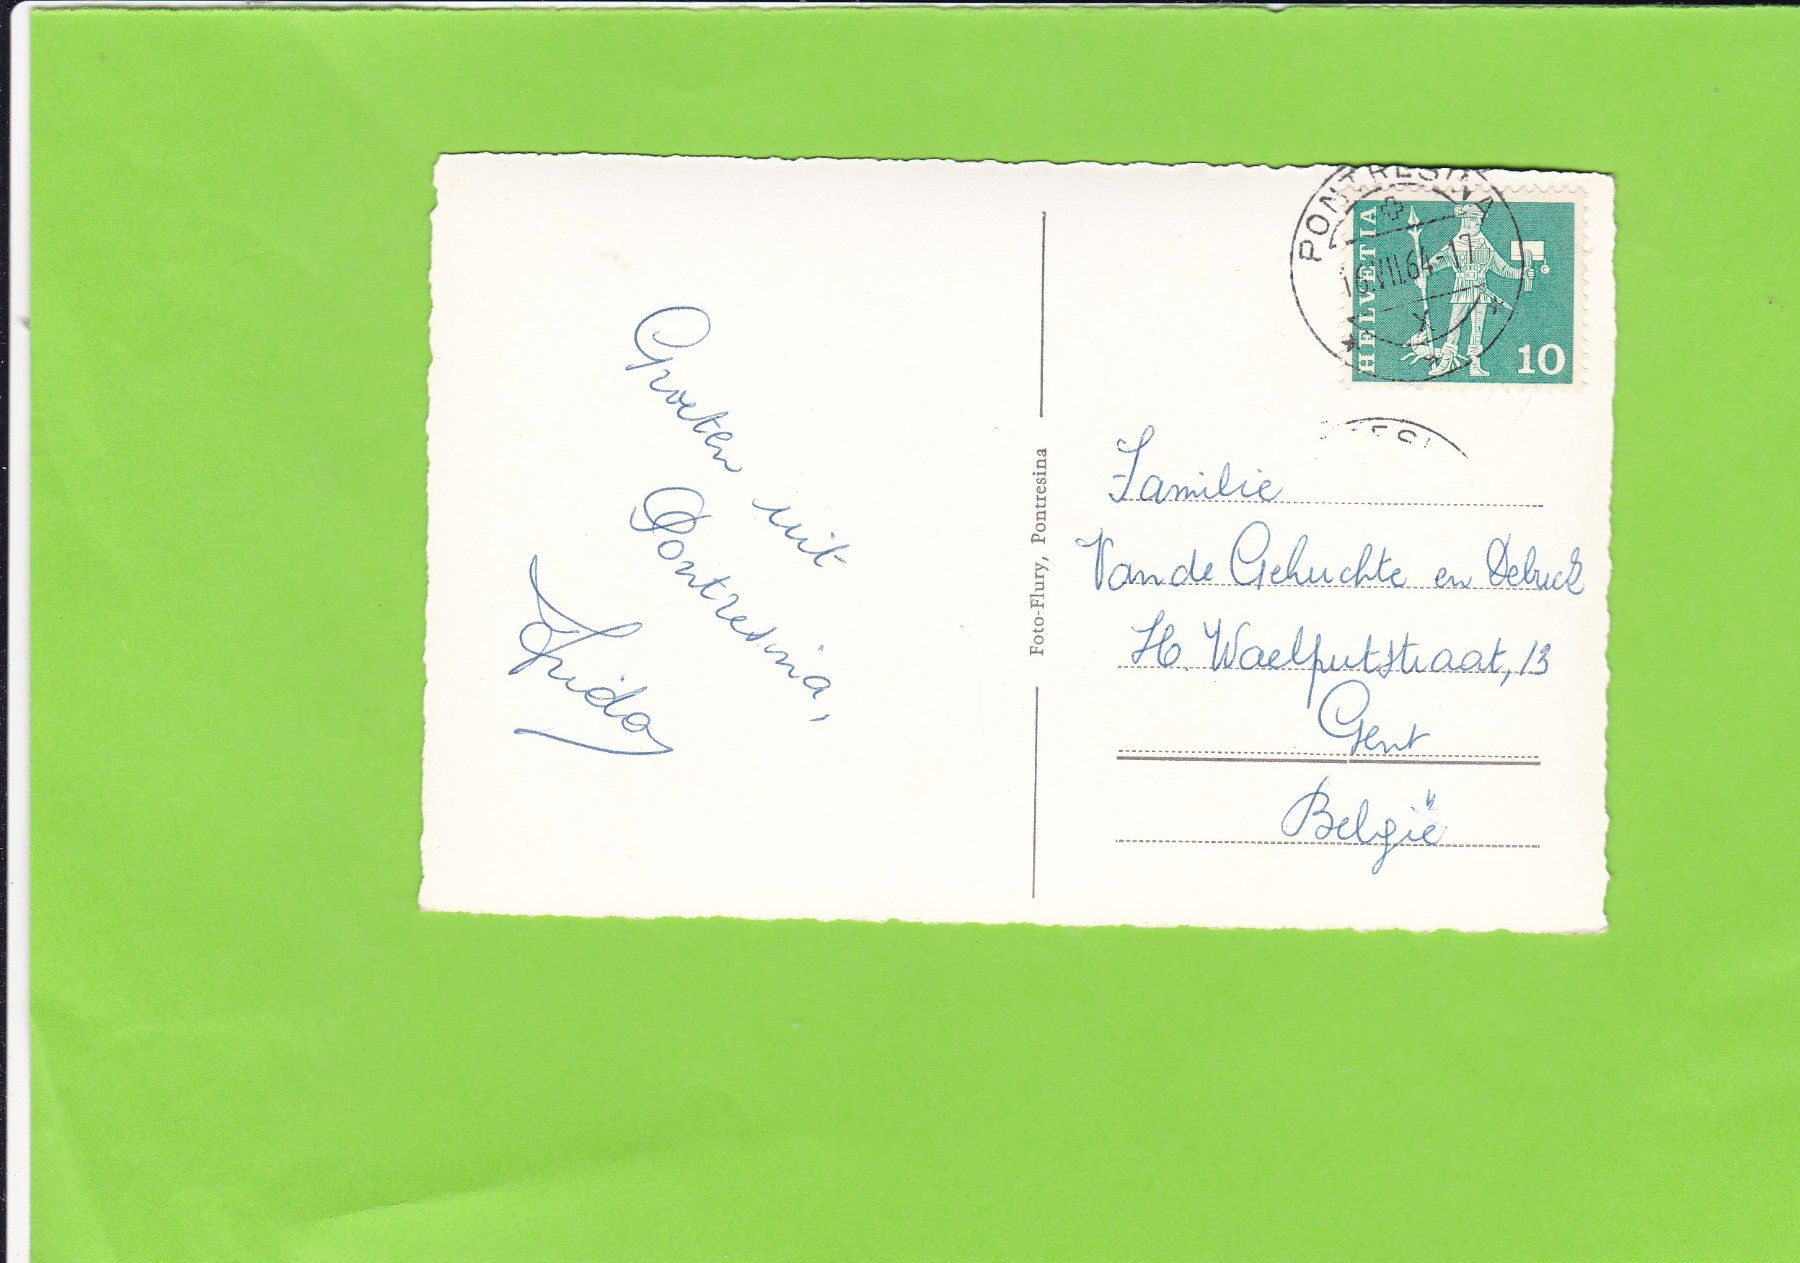 Groeten uit
Pontresina,
Frida
Foto-Flury, Pontresina
PONTRESINA
16.VII.64-17
HELVETIA
10
Familie
Van de Gehuchte en Debuck
H. Waelputstraat, 13
Gent
België